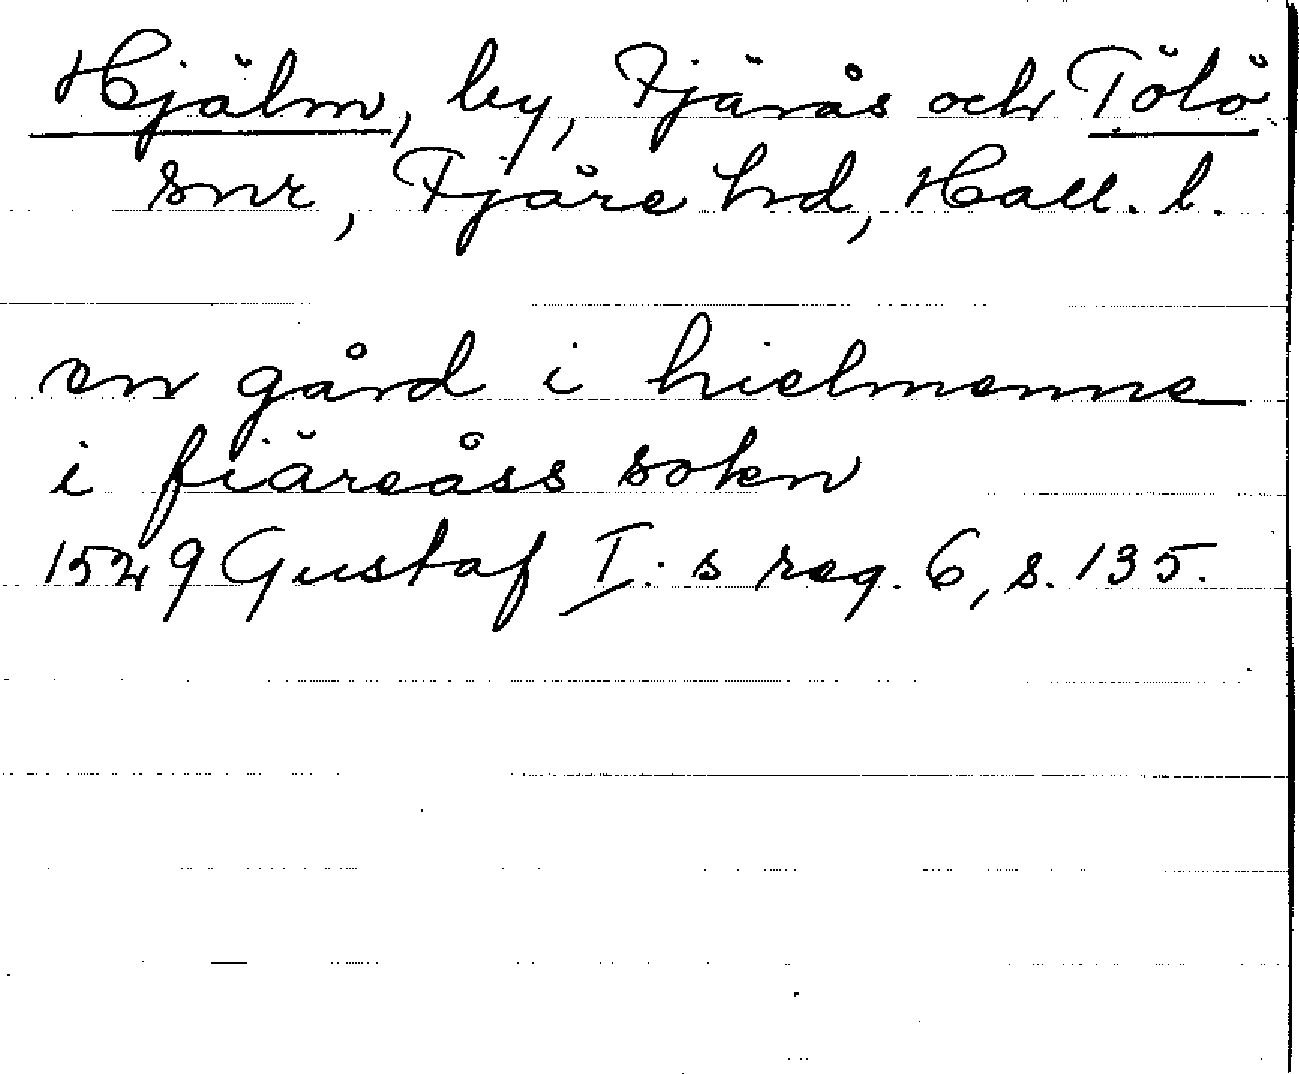 Hjälm, by, Fjärås och Tölö
snr, Fjäre hd, Hall. l.
en gård i hielmenne
i fiäreåss sokn
1529 Gustaf I:s reg. 6, s. 135.